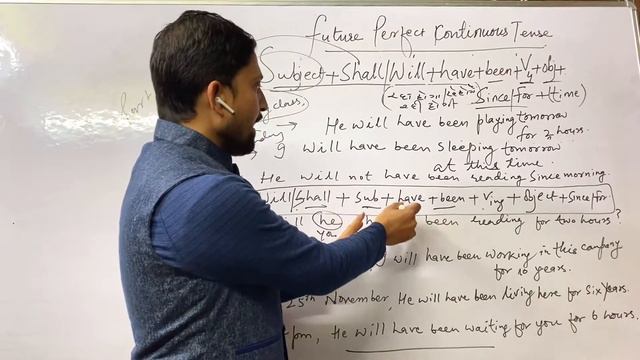 Future Perfect Continuous Tense
Subject + Shall/Will + have + been + V4 + Obj +
Since/for + (time)
class,
→ He will have been playing tomorrow
for 2 hours.
g will have been sleeping tomorrow
at this time.
He will not have been reading Since morning.
Will/Shall + Sub + have + been + Ving + Object + Since/for
he been reading for two hours?
you
will have been working in this company
for 10 years.
25th November, He will have been living here for Six years.
pm, He will have been waiting for you for 6 hours.